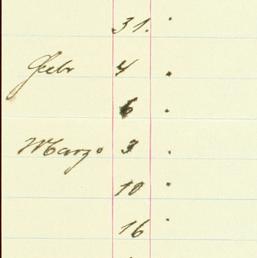 31. "
Febr 4 "
6 "
Marzo 3 "
10 "
16 "